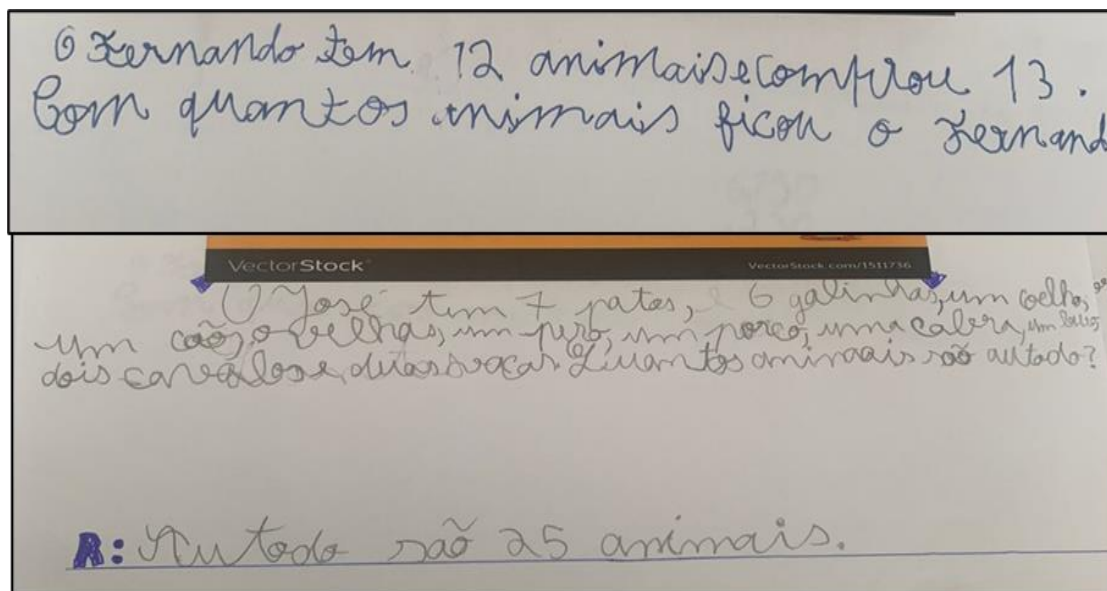 O Fernando tem 12 animais e comprou 13.
Com quantos animais ficou o Fernand
VectorStock VectorStock.com/1511736
O José tem 7 patos, e 6 galinhas, um coelho,
um cão, ovelhas, um piro, um porco, uma cabra, um
dois cavalos e duas vacas. Quantos animais são autodo?
R: Au todo são 25 animais.